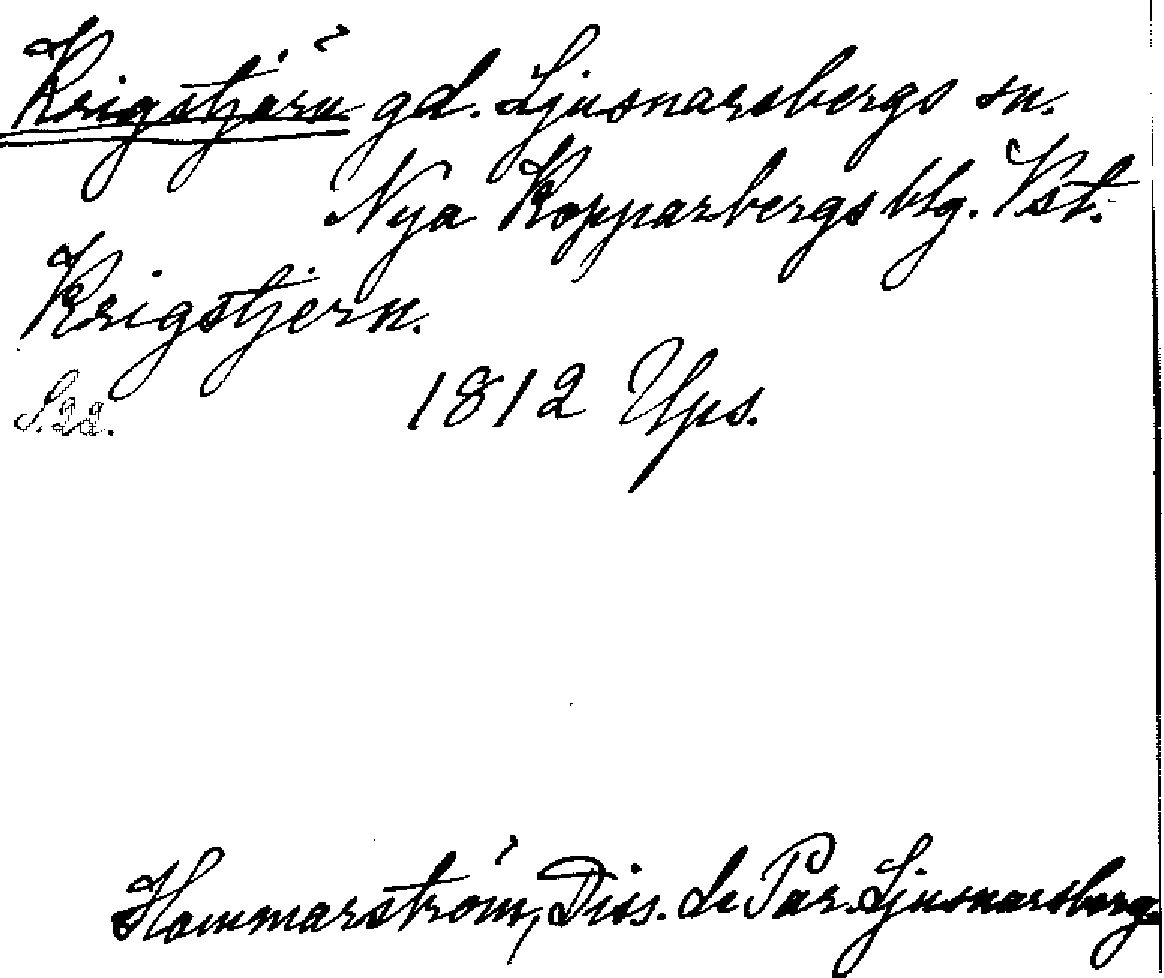 Krigstjärn gd. Ljusnarsbergs sn.
Nya Kopparbergs blg. Vst.
Krigstjern.
S. 22.
1812 Ups.
Hammarström, Diss. de Par. Ljusnarsberg